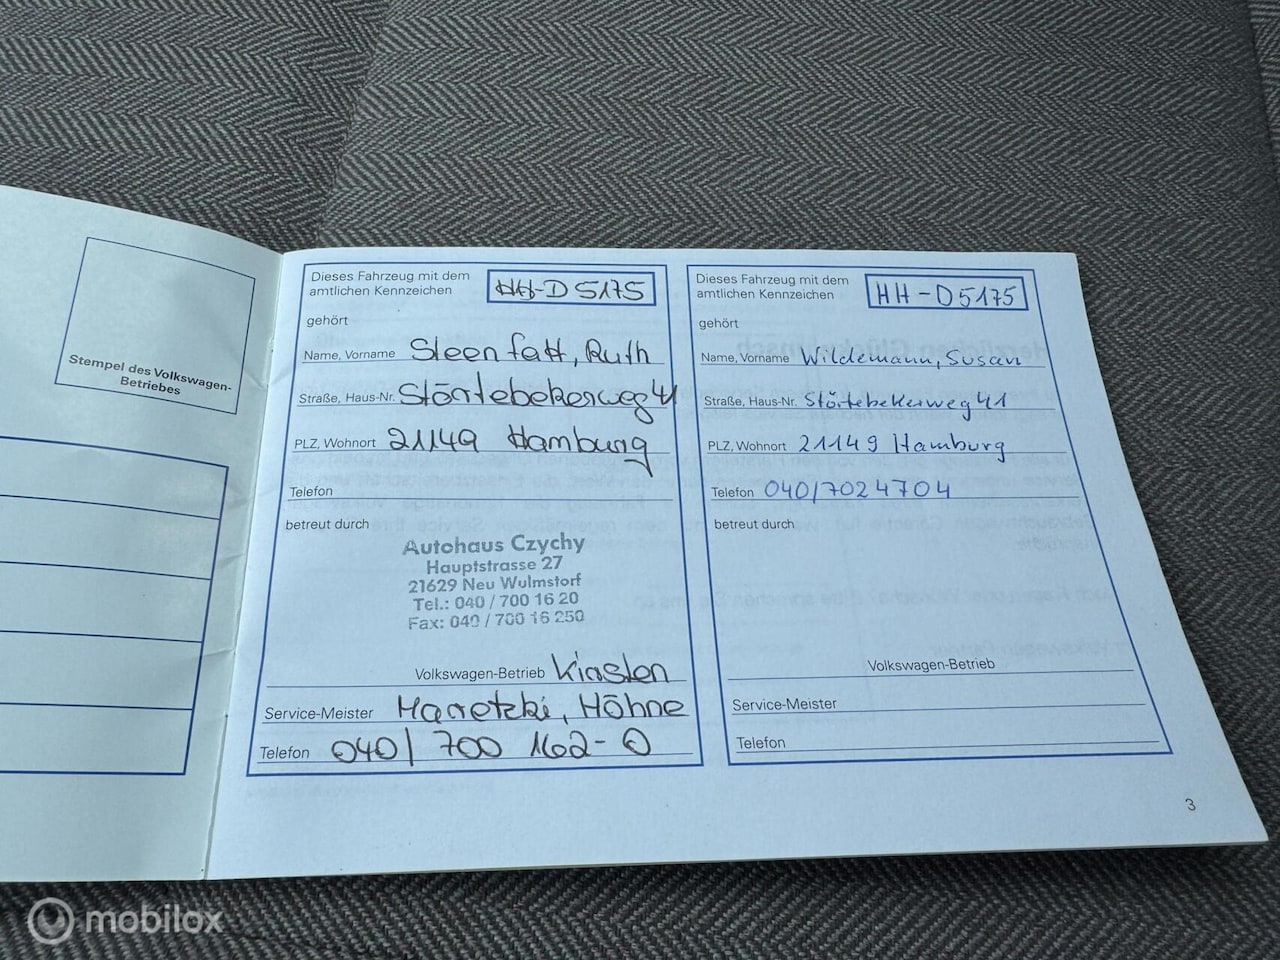 Stempel des Volkswagen-
Betriebes
Dieses Fahrzeug mit dem
amtlichen Kennzeichen HH-D 5175
gehört
Name, Vorname Steenfatt, Ruth
Straße, Haus-Nr. Störtebekerweg 41
PLZ, Wohnort 21149 Hamburg
Telefon
betreut durch
Autohaus Czychy
Hauptstrasse 27
21629 Neu Wulmstorf
Tel.: 040 / 700 16 20
Fax: 040 / 700 16 250
Volkswagen-Betrieb Kirsten
Service-Meister Maretzki, Höhne
Telefon 040/ 700 162-0
Dieses Fahrzeug mit dem
amtlichen Kennzeichen HH-D5175
gehört
Name, Vorname Wildemann, Susan
Straße, Haus-Nr. Störtebekerweg 41
PLZ, Wohnort 21149 Hamburg
Telefon 040/7024704
betreut durch
Volkswagen-Betrieb
Service-Meister
Telefon
3
mobilox